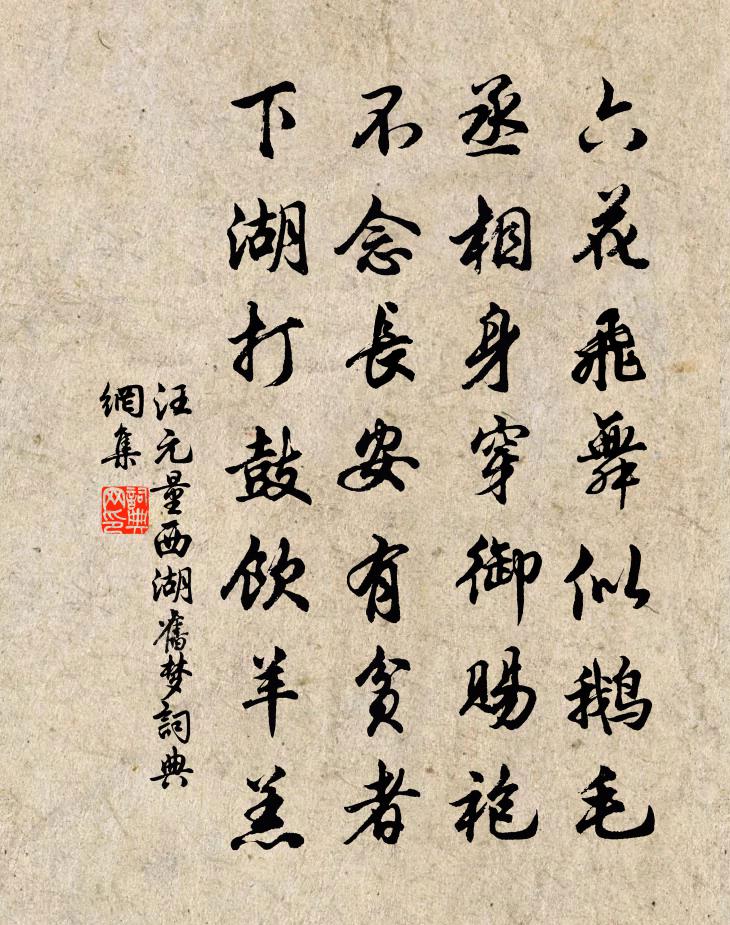 六花飛舞似鹅毛
丞相身穿御賜袍
不念長安有貧者
下湖打鼓飲羊羔
汪元量西湖舊梦詞典
網集
詞典网印